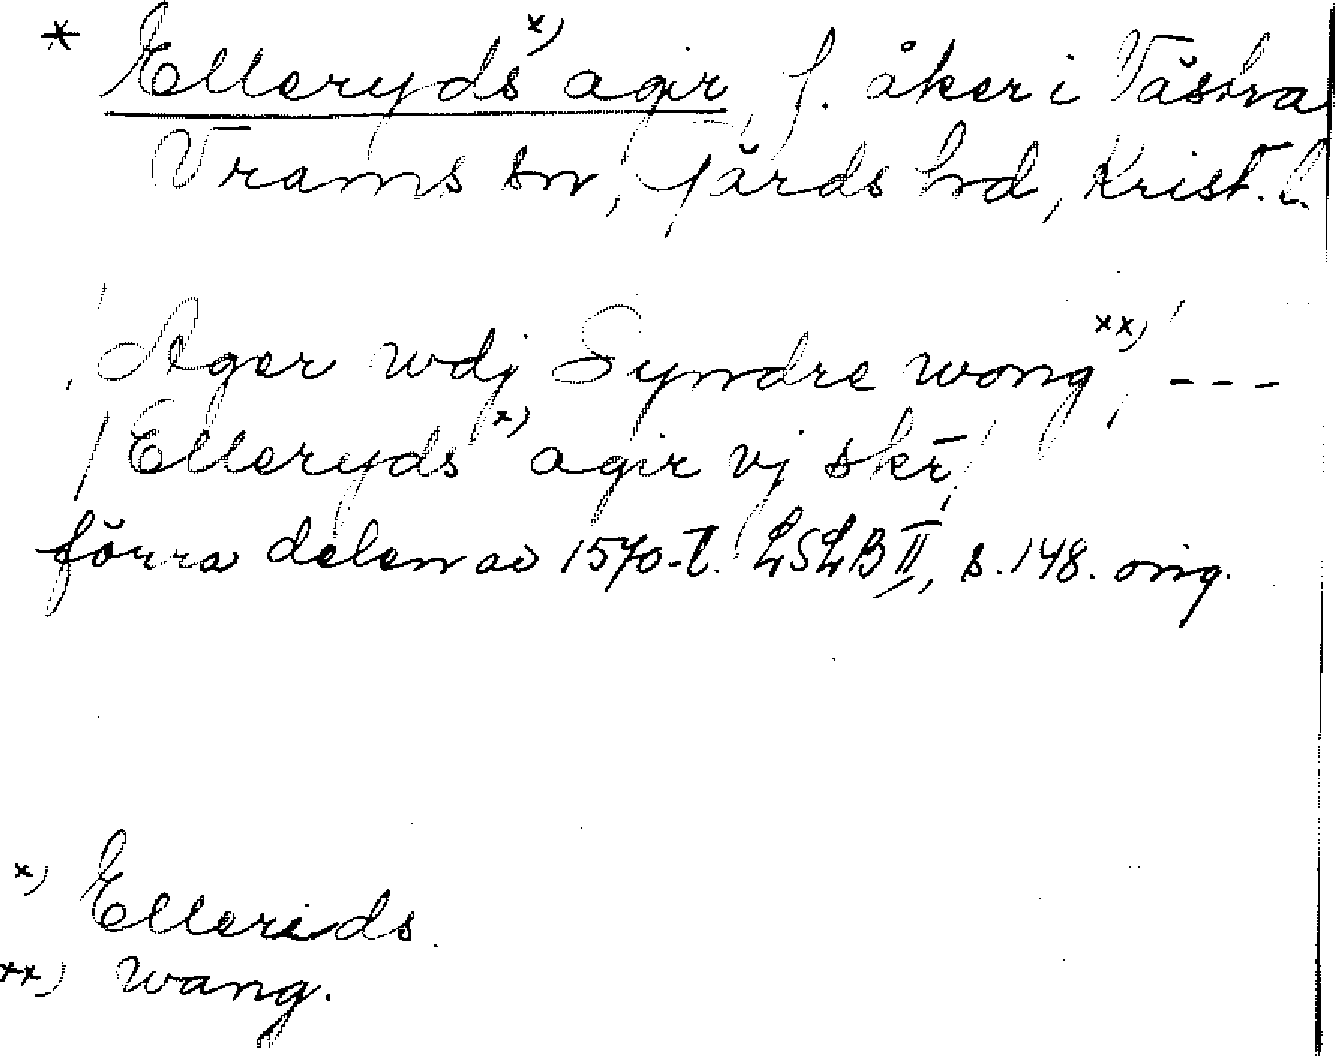 * Elleryds x) agir, f. åker i Västra
Vrams sn, Gärds hd, Krist. l.
/Ager wdj Syndre wong xx)/, ---
/Elleryds x) agir vj skr/,
förra delen av 1570-t. LSLB II, s. 148. orig.
x) Ellerids.
xx) wang.